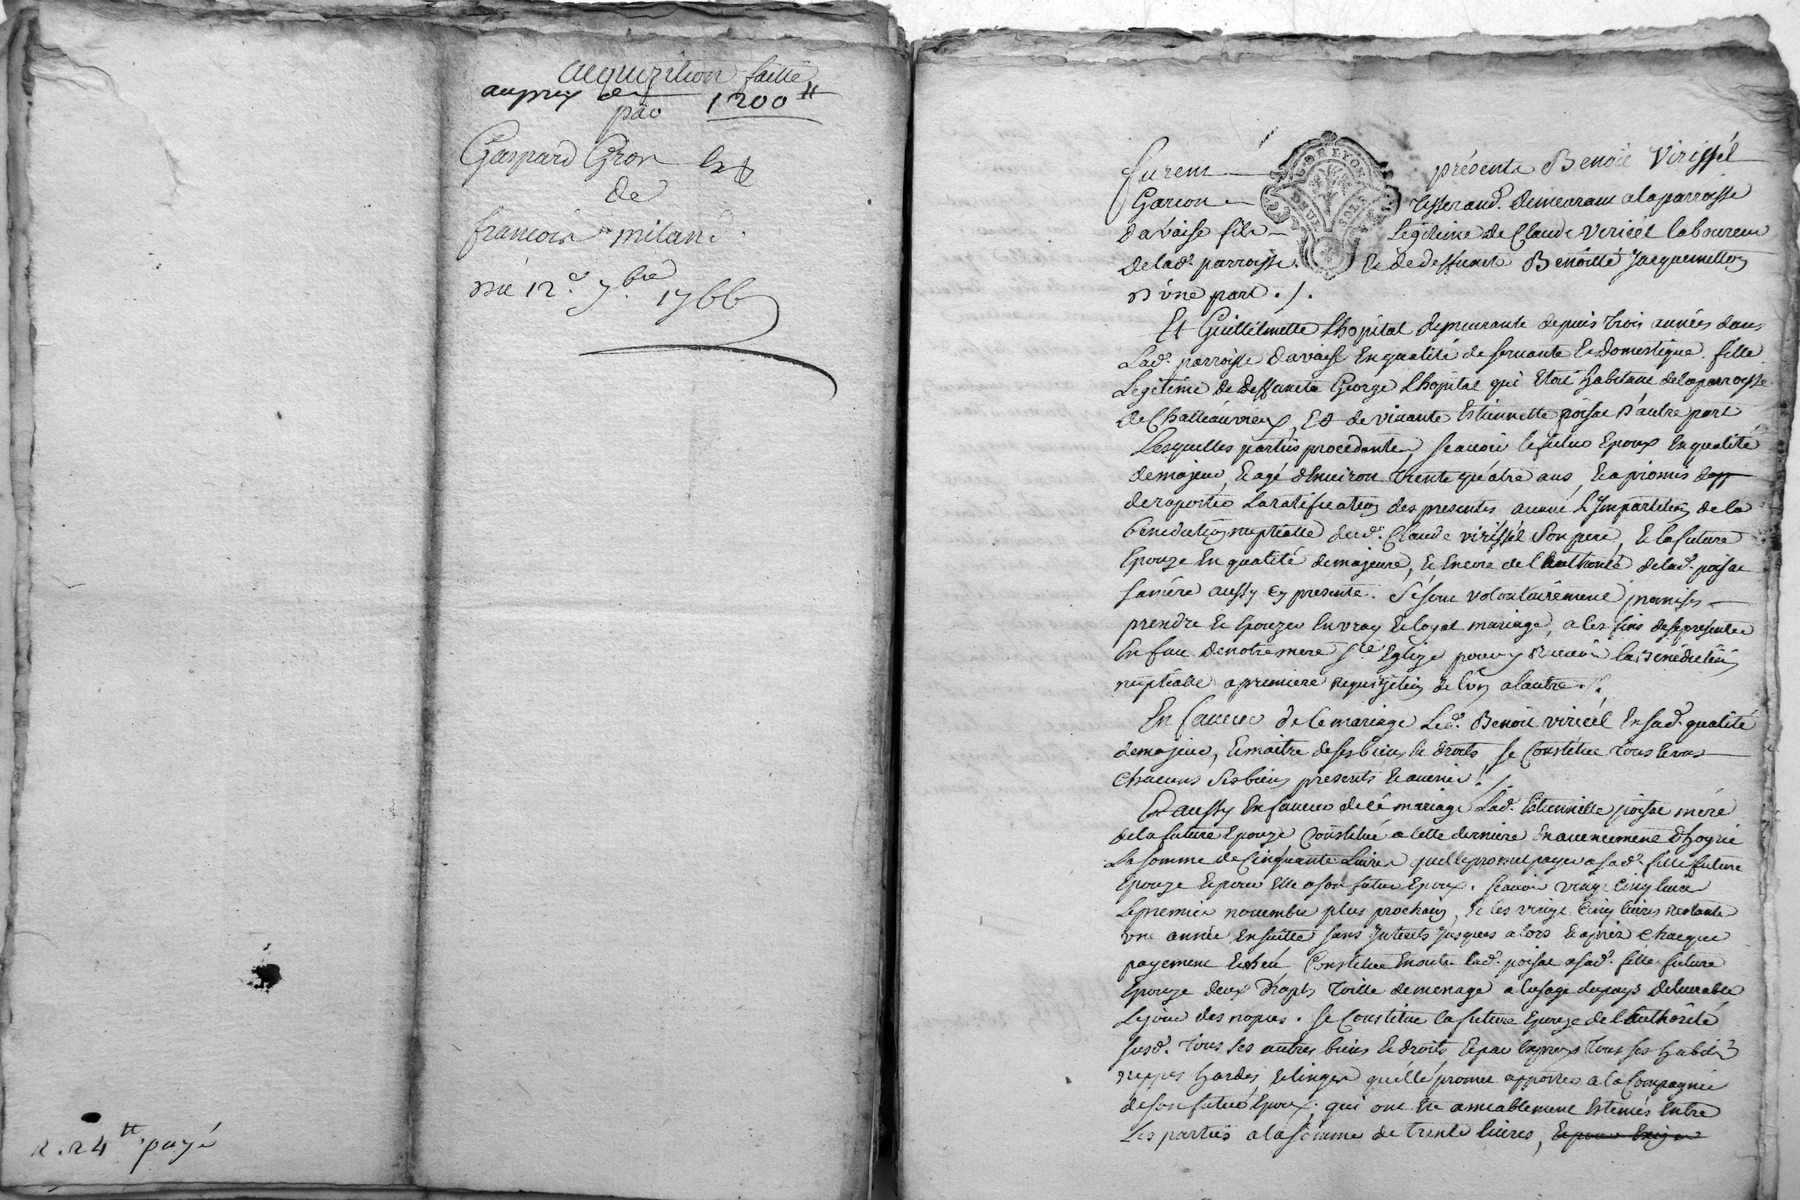 acquizition faitte
au prix de 1200 ₶
par
Gaspard Gron
de
francois milan
du 12e 7bre 1766
R. 24 tt payé
G. DE LYON
DEUX SOLS
furent présents Benoit Virissel
Garcon Tisserand. demeurant a la parroisse
davaise fils Legitime de Claude viricel laboureur
de lad. parroisse. & de deffuncte Benoitte Jacquemetton
D'une part ./.
Et Guillelmette Lhopital demeurante depuis trois années dans
Lad. parroisse davaise En qualité de servante & domestique. fille
Legitime de deffunct George Lhopital qui Etoit habitant de la parroisse
de Chatteauvieux, Et de vivante Estiennette poisat D'autre part
Lesquelles parties procedantes, sçavoir le futur Epoux En qualité
de majeur, & agé d'Environ trente quatre ans, & a promis
de raporter La ratification des presentes avant L'Impartition de la
benediction nuptialle dud. Claude virissel son pere, & la future
Epouze En qualité de majeure, & Encore de l'authorité de lad. poisat
sa mére aussy Cy presente. Se sont volontairement promis
prendre & Epouzer En vray & loyal mariage, a les fins de se presenter
En face de notre mere Ste Eglize pour y recevoir la Bénédiction
nuptialle a premiere requizition de l'un a l'autre ./.
En faveur de ce mariage Led. Benoit viricél En sad. qualité
de majeur, & maitre de ses biens & droits, se Constitue tous & uns
chacuns ses biens presents & avenir ./
Et aussy En faveur de ce mariage Lad. Estiennette poisat mére
de la future Epouze Constitue a cette derniere En avencement d'hoyrie
La somme de Cinquante Livres qu'elle promet payer a sad. fille future
Epouze & pour Elle a son futur Epoux. sçavoir vingt Cinq livres
Le premier novembre plus prochain, & les vingt Cinq livres restante
une année En suitte sans Interets jusques a lors & aprez chacque
payement Echéu. Constitue En outre lad. poisat a sad. fille future
Epouze deux draps toille de menage a l'usage du pays délivrable
Le jour des nopces. Se Constitue la future Epouze de l'authorité
susd. tous ses autres biens & droits & par Exprez tous ses habits
nippes hardes, & linges qu'elle promet apporter a la Compagnie
de son futur Epoux, qui ont Eté amiablement Estimés Entre
Les parties a la somme de trente livres,